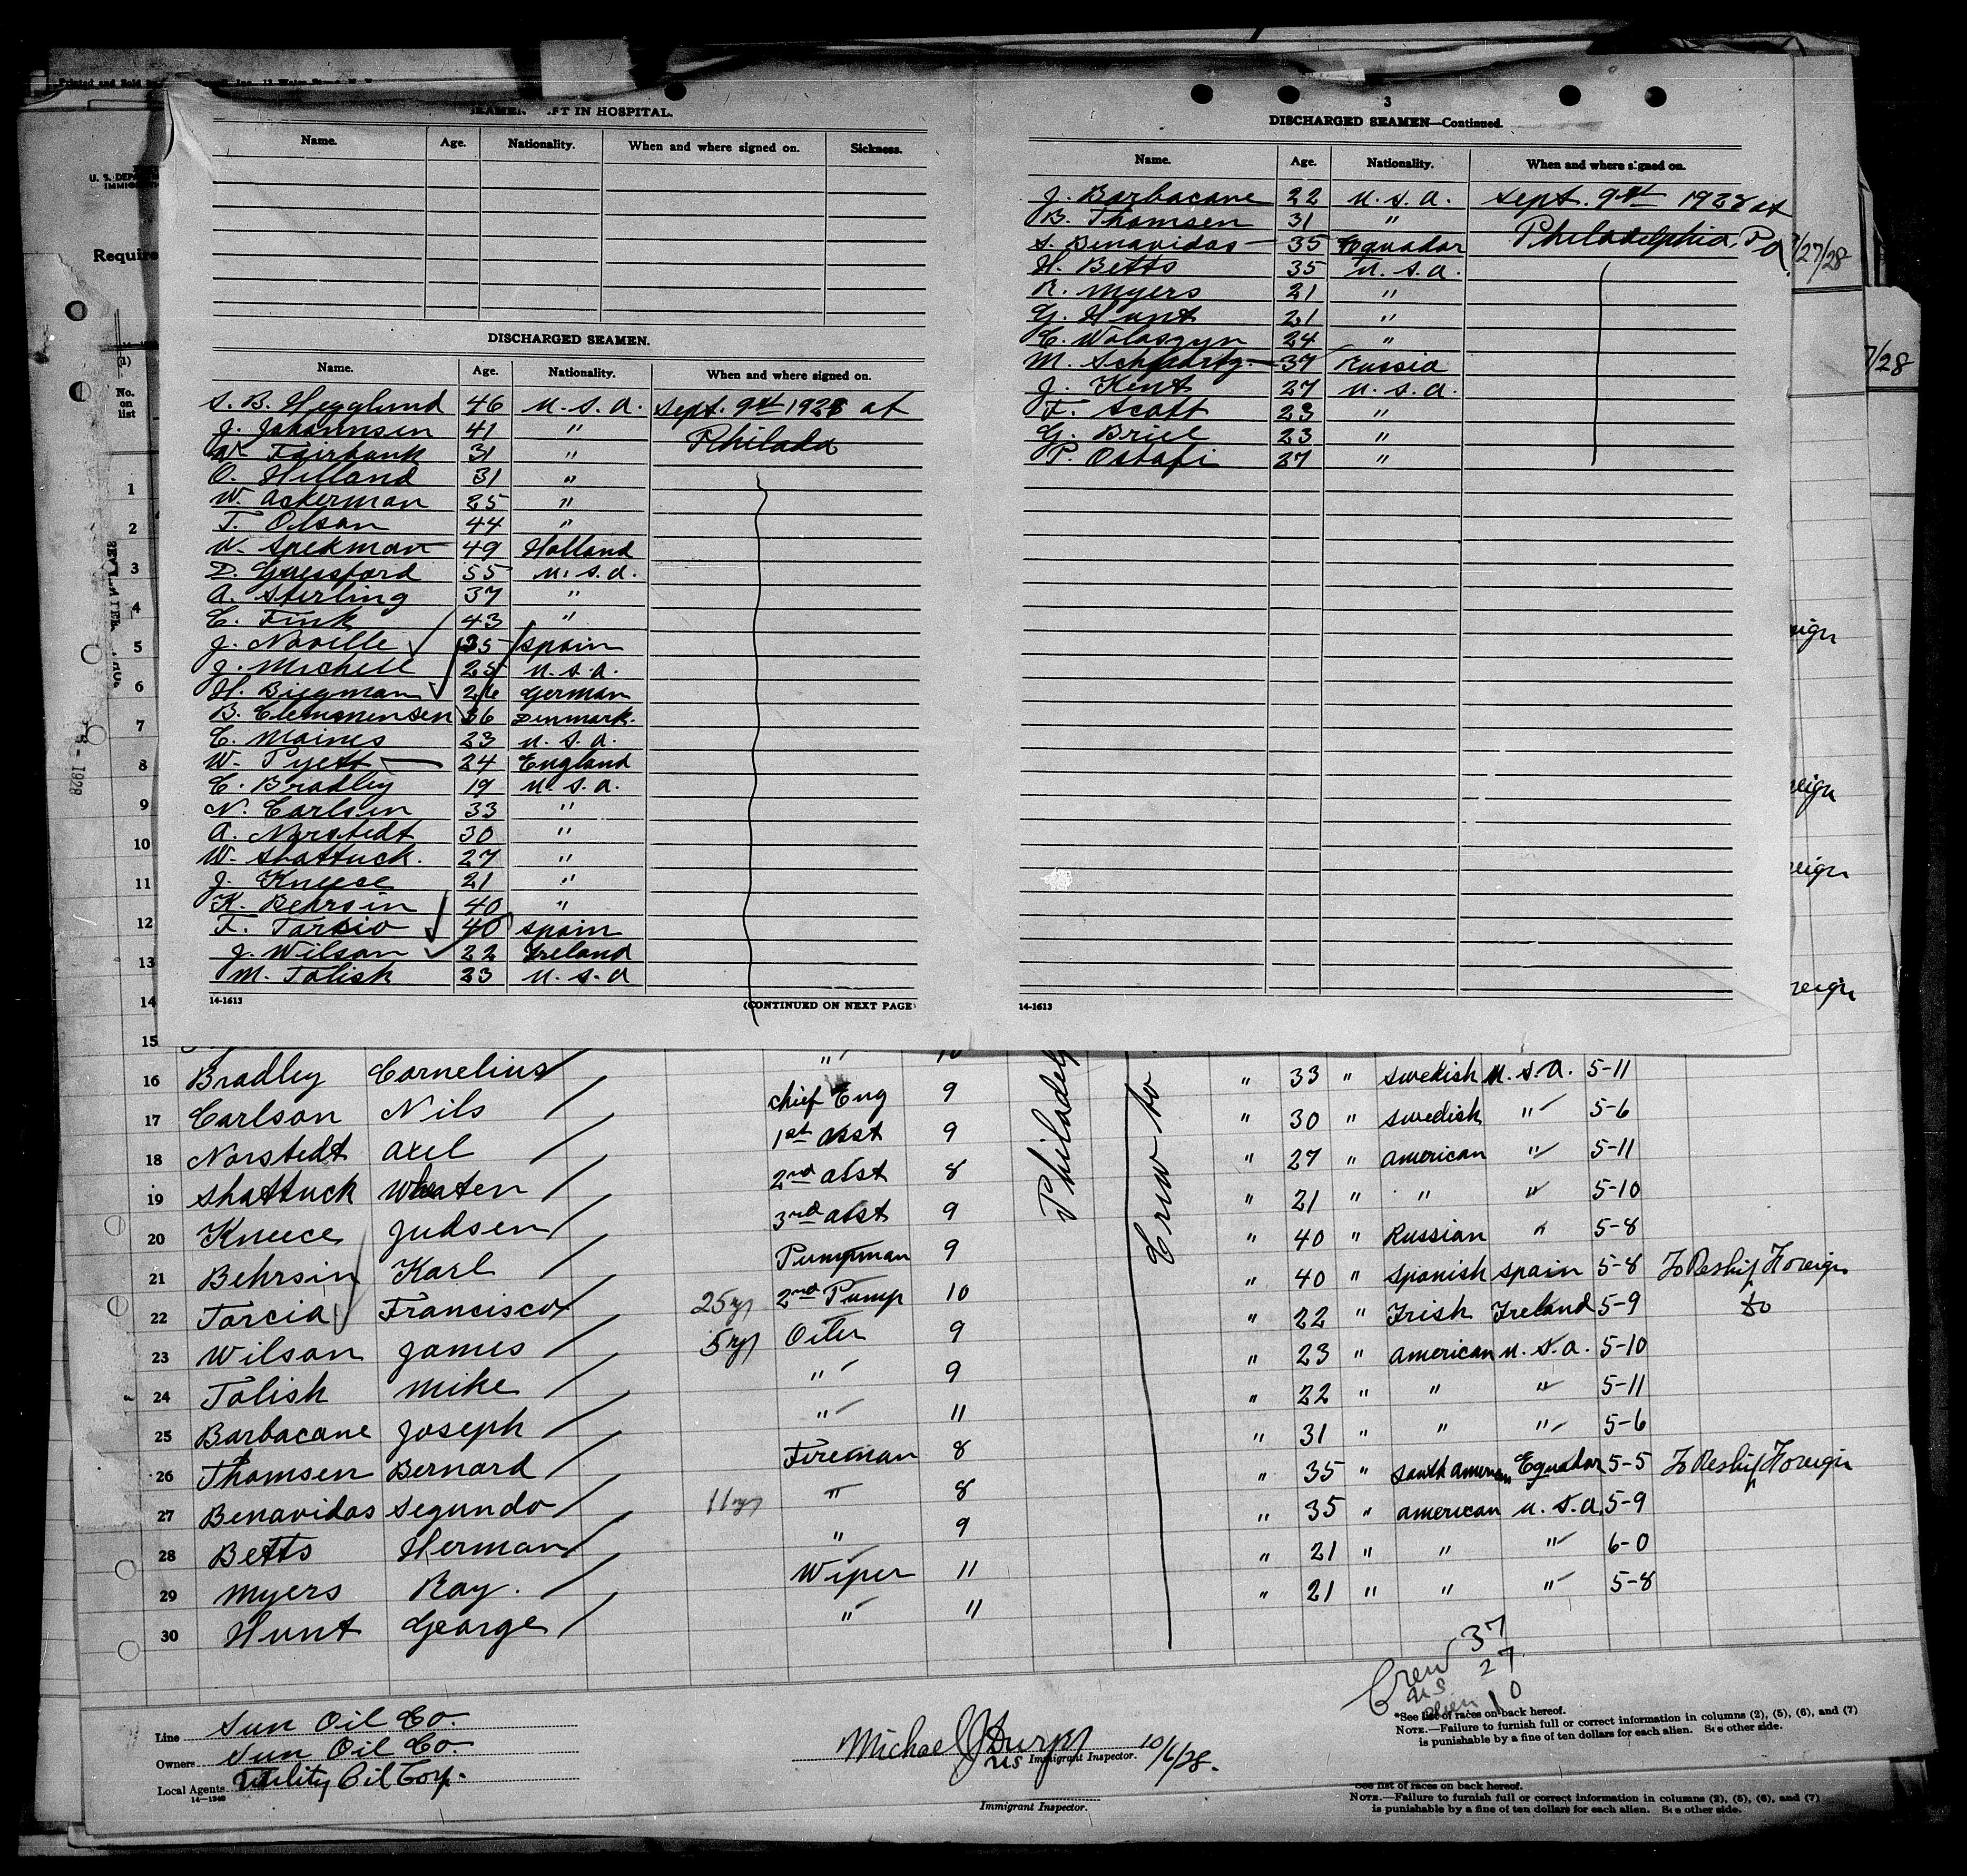 Printed and Sold
Inc. 12 Water Street, N. Y.
IN HOSPITAL.
Name. Age. Nationality. When and where signed on. Sickness.
DISCHARGED SEAMEN.
Name. Age. Nationality. When and where signed on.
S. B. Hegglund 46 U.S.A. Sept. 9th 1928 at
J. Johannsen 41 " Philada
W. Fairbank 31 "
O. Hilland 31 "
W. Ackerman 25 "
T. Olson 44 "
W. Spekman 49 Holland
D. Guessford 55 U.S.A.
A. Sterling 37 "
C. Fink 43 "
J. Novelle 35 Spain
J. Michell 25 U.S.A.
H. Biegman 26 German
B. Clemmensen 36 Denmark.
C. Maines 23 U.S.A.
W. Pyett 24 England
C. Bradley 19 U.S.A.
N. Carlsen 33 "
A. Norstedt 30 "
W. Shattuck. 27 "
J. Kneece 21 "
K. Behrsin 40 "
F. 40 Spain
J. Wilson 22 Ireland
M. Tolish 23 U.S.A
14-1613 (CONTINUED ON NEXT PAGE)
3
DISCHARGED SEAMEN—Continued.
Name. Age. Nationality. When and where signed on.
J. Barbacane 22 U.S.A. Sept. 9th 1928 at
B. Thomsen 31 " Philadelphia, Pa
S. Benavidas 35 Equador
H. Betts 35 U.S.A.
R. Myers 21 "
G. Hunt 21 "
C. Wolaszyn 24 "
M. Schwartz 37 Russia
J. Kent 27 U.S.A.
F. Scott 23 "
G. Briel 23 "
P. Ostafi 27 "
14-1613
/27/28
/28
U. S. DEPA
IMMIG
Require
(1)
No.
on
list
1
2
3
4
5
6
7
8
9
10
11
12
13
14
15
1928
eign
eign
reign
" 10
16 Bradley Cornelius Chief Eng 9 " 33 " Swedish U.S.A. 5-11
17 Carlson Nils 1st Asst 9 " 30 " Swedish " 5-6
18 Norstedt Axel 2nd Asst 8 " 27 " American " 5-11
19 Shattuck Wheaten 3rd Asst 9 " 21 " " " 5-10
20 Kneece Judsen Pumpman 9 " 40 " Russian " 5-8
21 Behrsin Karl 2nd Pump 10 " 40 " Spanish Spain 5-8 To Reship Foreign
22 Torcia Francisco 25 yrs Oiler 9 " 22 " Irish Ireland 5-9 do
23 Wilson James 5 yrs " 9 " 23 " American U.S.A. 5-10
24 Tolish Mike " 11 " 22 " " " 5-11
25 Barbacane Joseph Fireman 8 " 31 " " " 5-6
26 Thomsen Bernard " 8 " 35 " South American Equador 5-5 To Reship Foreign
27 Benavidas Segundo 11 yrs " 9 " 35 " American U.S.A. 5-9
28 Betts Herman Wiper 11 " 21 " " " 6-0
29 Myers Ray. " 11 " 21 " " " 5-8
30 Hunt George
Philadelp
Crew to
Crew 37
U.S. 27
Alien 10
Line Sun Oil Co.
Owners Sun Oil Co.
Local Agents Utility Oil Corp.
14-1240
Michael J US Immigrant Inspector. 10/6/28.
*See list of races on back hereof.
NOTE.—Failure to furnish full or correct information in columns (2), (5), (6), and (7)
is punishable by a fine of ten dollars for each alien. See other side.
Immigrant Inspector.
See list of races on back hereof.
NOTE.—Failure to furnish full or correct information in columns (2), (5), (6), and (7)
is punishable by a fine of ten dollars for each alien. See other side.